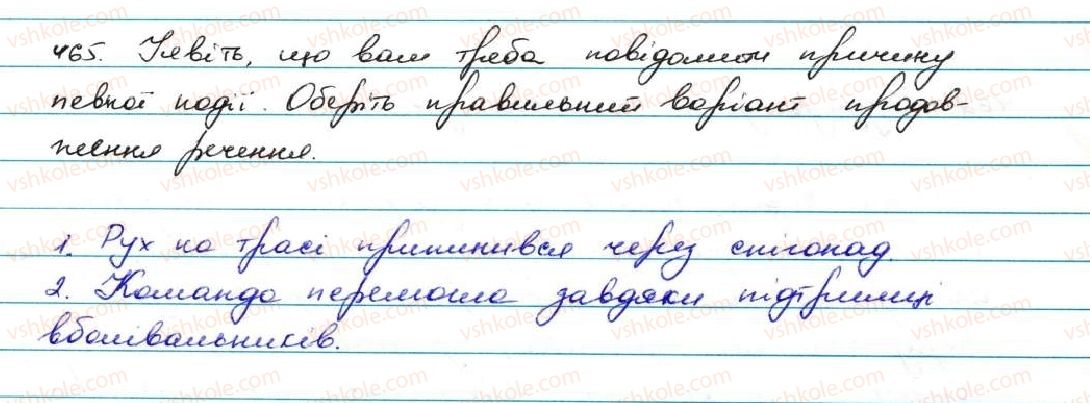 465. Уявіть, що вам треба повідомити причину
певної події. Оберіть правильний варіант продов-
ження речення.
1. Рух на трасі припинився через снігопад.
2. Команда перемогла завдяки підтримці
вболівальників.